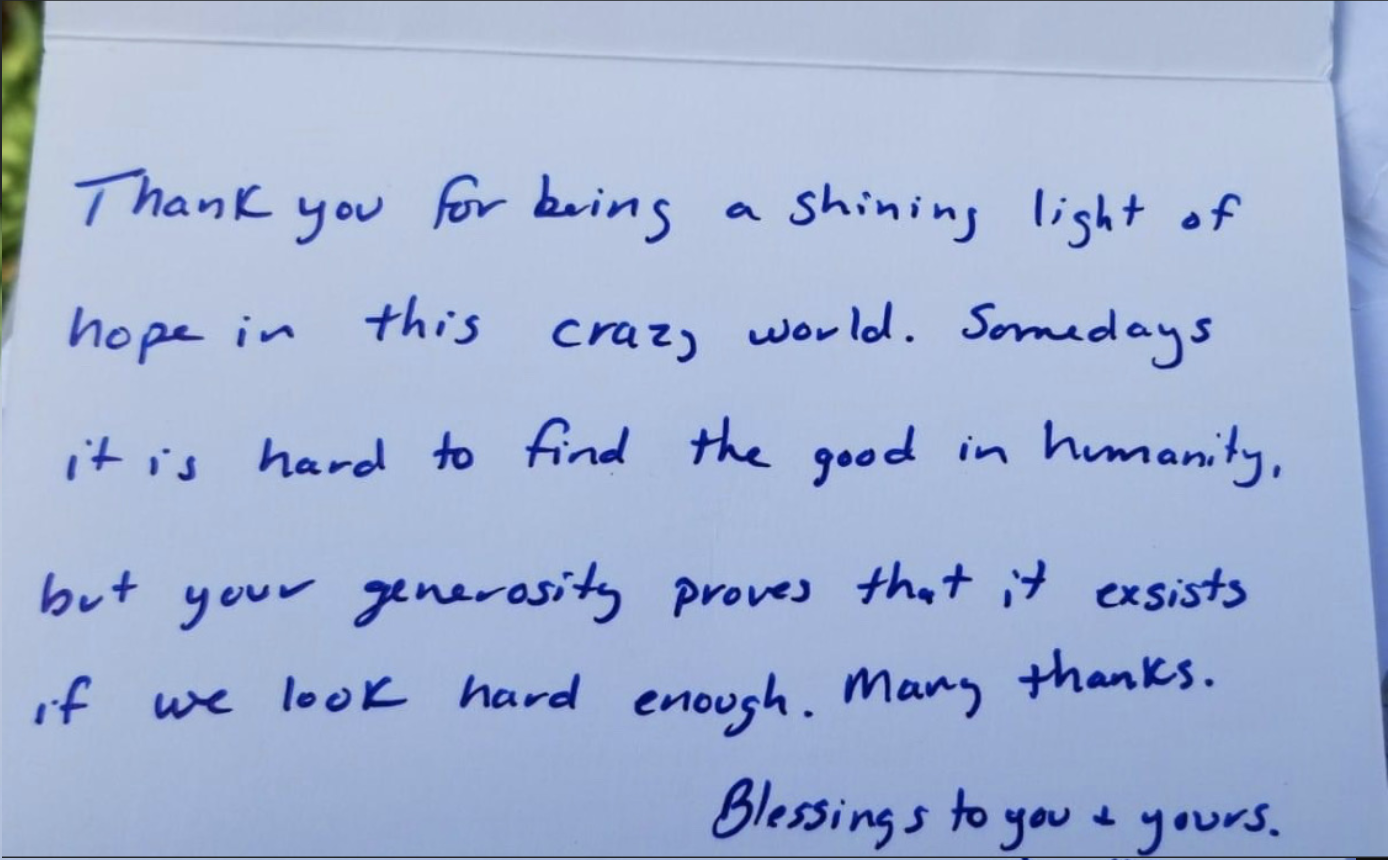 Thank you for being a shining light of
hope in this crazy world. Somedays
it is hard to find the good in humanity,
but your generosity proves that it exsists
if we look hard enough. Many thanks.
Blessings to you + yours.